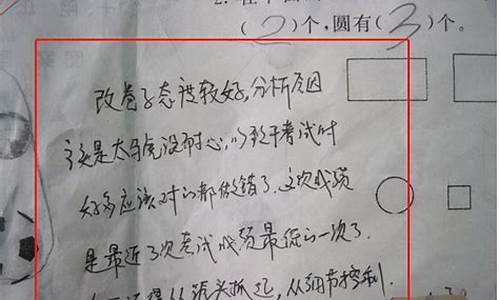 (2)个,圆有(3)个。
改卷子态度较好,分析原因
主要是太马虎没耐心,以致于考试时
好多应该对的都做错了.这次成绩
是最近几次考试成绩最低的一次了.
从源头抓起,从细节控制.